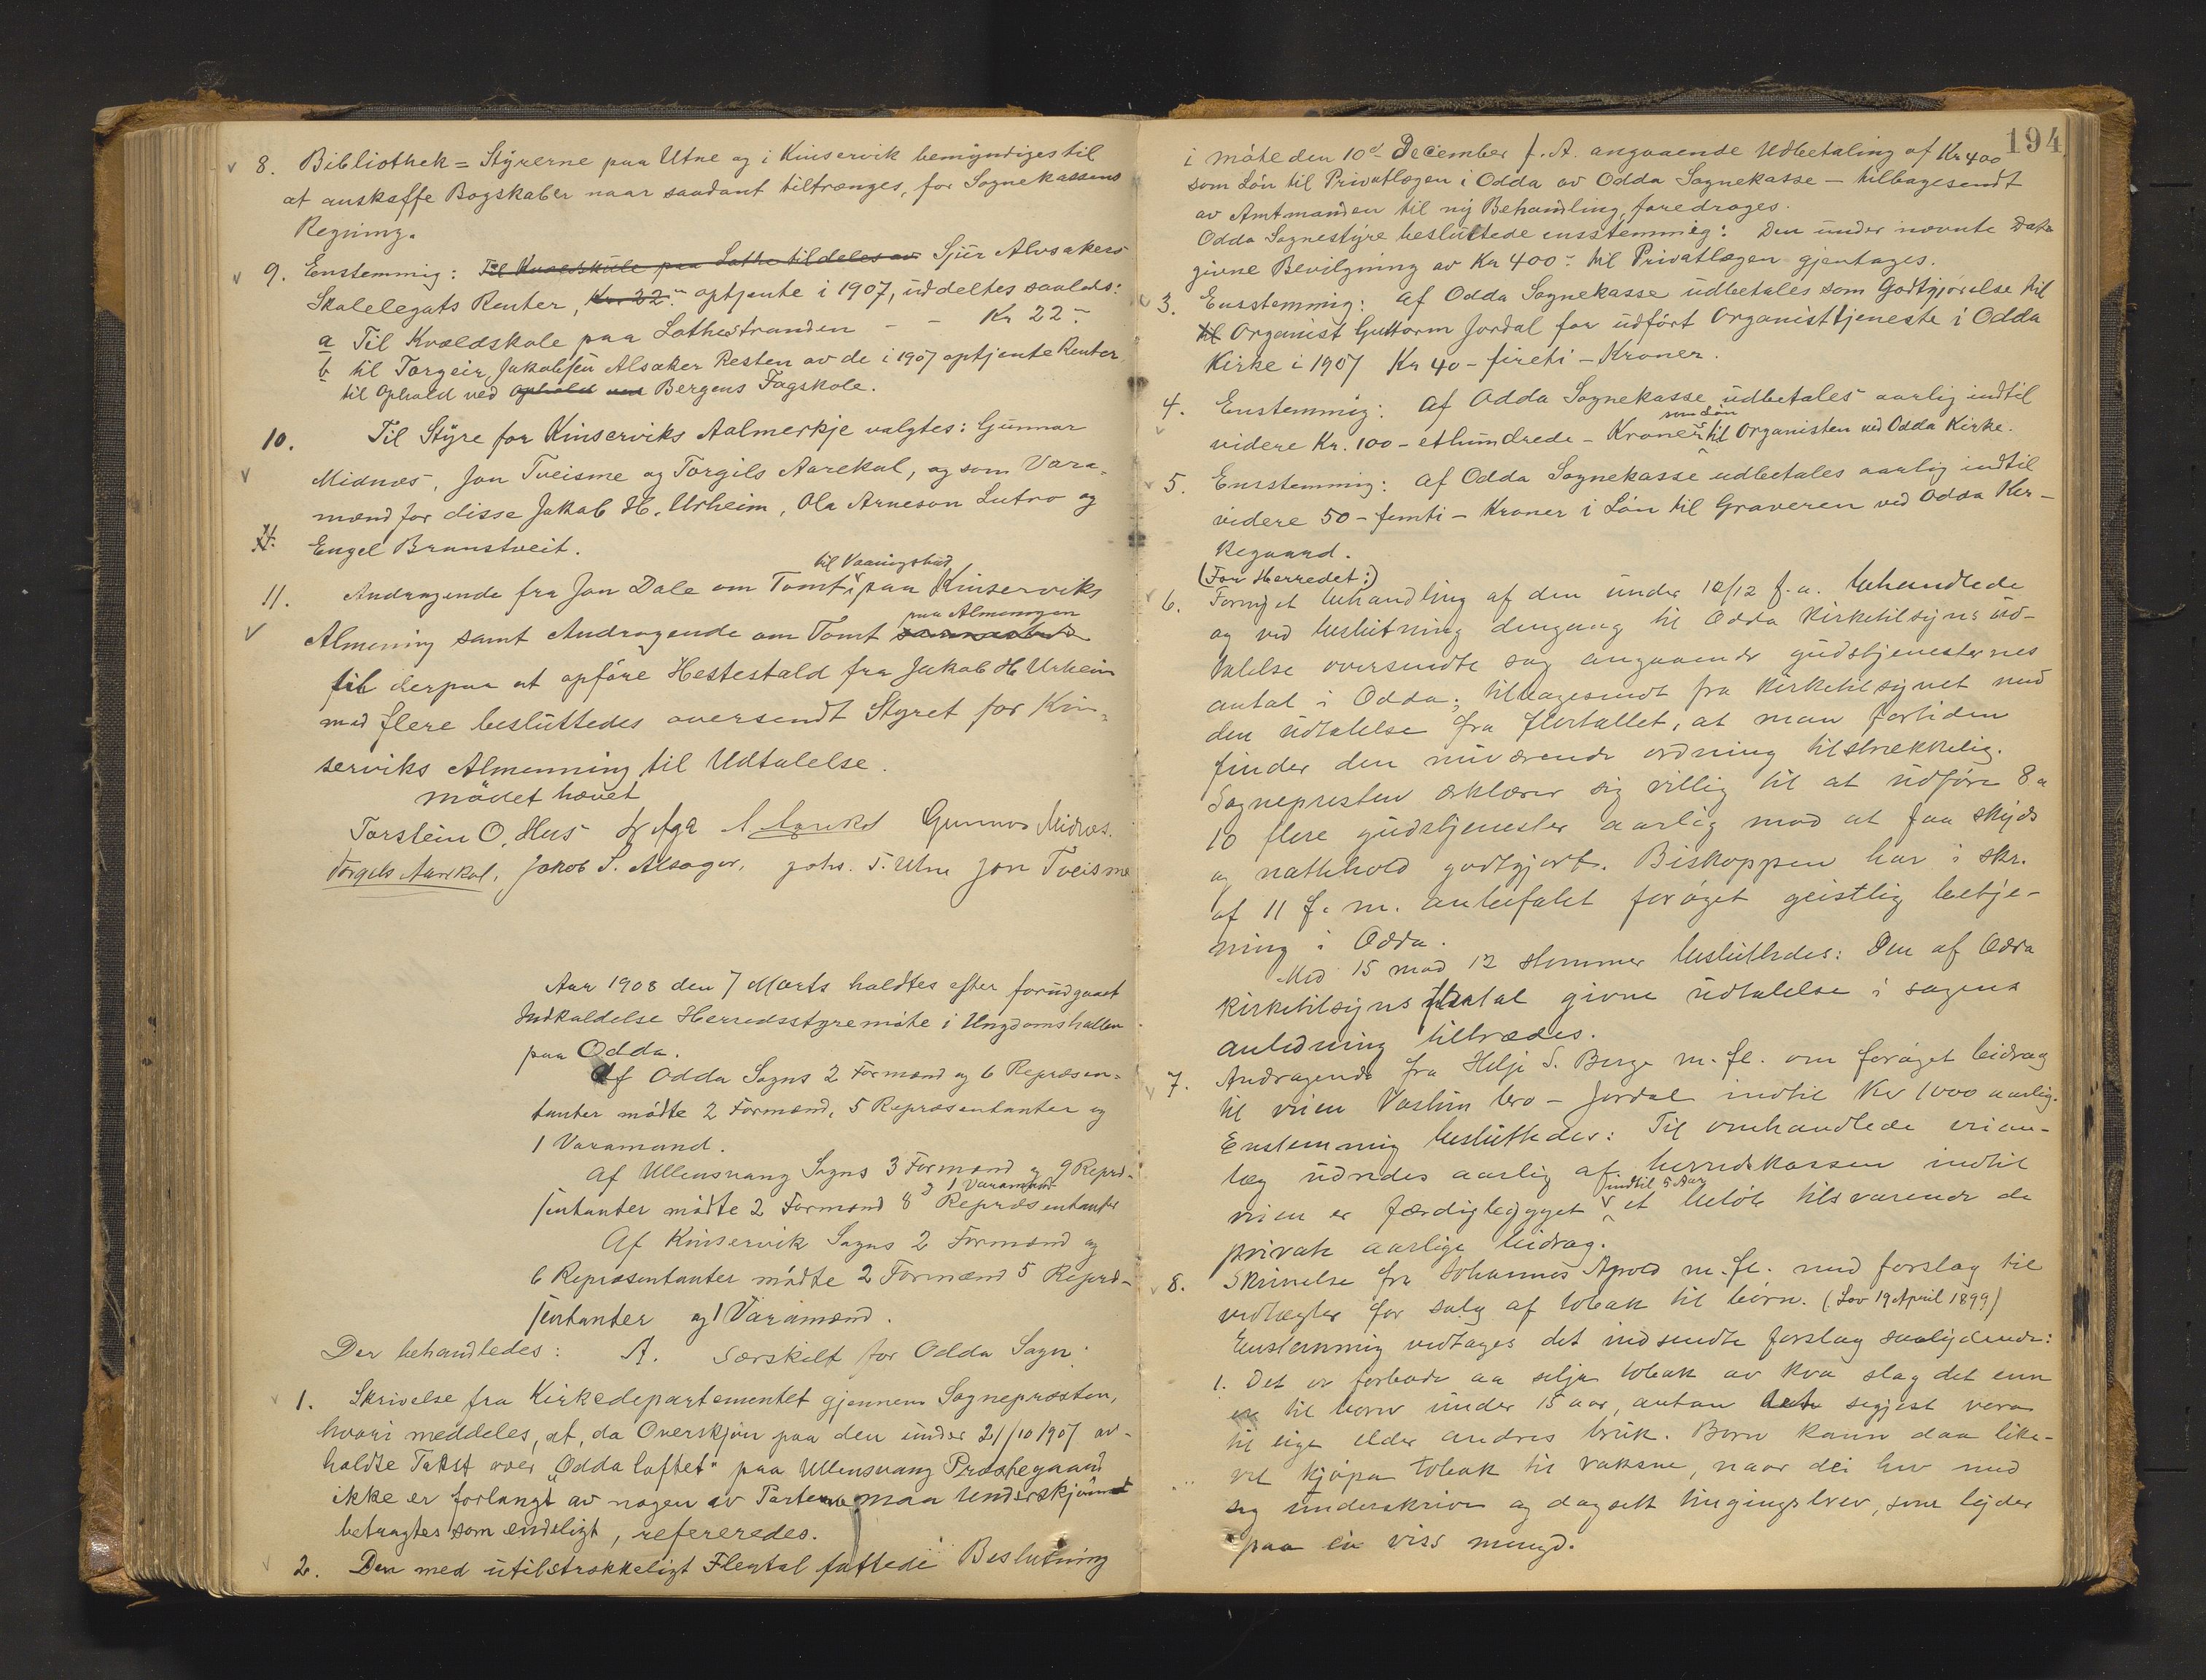 8. Bibliothek = Styrerne paa Utne og i Kinservik bemyndiges til
at anskaffe Bogskaber naar saadant tiltrænges, for Sognekassens
Regning.
9. Enstemmig: Til Kvældskule paa Lothe tildeles av Sjur Alvsakers
Skolelegats Renter, Kr. 22.- optjente i 1907, uddeltes saaleds:
a Til Kvældskole paa Lothestranden - - Kr 22.-
b til Torgeir Jakobsen Alsaker Resten av de i 1907 optjente Renter
til Ophold ved Ophold ved Bergens Fagskole.
10. Til Styre for Kinserviks Aalmenje valgtes: Gunnar
Midnæs, Jon Tveisme og Torgils Aarekol, og som Vara-
mænd for disse Jakob H. Urheim, Ola Arneson Lutro og
11. Engel Branstveit.
til Vaaningshus
11. Andragende fra Jon Dale om Tomt paa Kinserviks
paa Almenngen
Almening samt Andragende om Tomt
til derpaa at opføre Hestestald fra Jakob H Urheim
med flere besluttedes oversendt Styret for Kin-
serviks Almenning til Udtalelse.
Mødet hævet
Torstein O. Hus Gunnar Midnæs.
Torgils Aarekol, Jakob S. Alsager, Johs. T. Utne Jon Tveisme
Aar 1908 den 7 Marts holdtes efter forudgaaet
Indkaldelse Herredsstyremøte i Ungdomshallen
paa Odda.
Af Odda Sogns 2 Formænd og 6 Repræsen-
tanter mødte 2 Formænd, 5 Repræsentanter og
1 Varamand.
Af Ullensvang Sogns 3 Formænd og 9 Repræ-
og 1 Varamand
sentanter mødte 2 Formænd 8 Repræsentanter
Af Kinservik Sogns 2 Formænd og
6 Repræsentanter mødte 2 Formænd 5 Repræ-
sentanter og 1 Varamænd.
Der behandledes: A. Særskilt for Odda Sogn:
1. Skrivelse fra Kirkedepartementet gjennem Sognepræsten,
hvori meddeles, at, da Overskjøn paa den under 21/10 1907 av-
holdte Takst over "Odda loftet" paa Ullensvang Præstegaard
ikke er forlangt av nogen av Parterne, maa Underskjønnet
betragtes som endeligt, refereredes.
2. Den med utilstrækkeligt Flertal fattede Beslutning
194
i møte den 10d December f. A. angaaende Udbetaling af Kr 400
som Løn til Privatlægen i Odda av Odda Sognekasse - tilbagesendt
av Amtmanden til ny Behandling, foredroges.
Odda Sognestyre besluttede ensstemmig: Den under nævnte Dato
givne Bevilgning av Kr 400.- til Privatlægen gjentages.
3. Ensstemmig: Af Odda Sognekasse udbetales som Godtgjørelse til
til Organist Guttorm Jordal for udført Organisttjeneste i Odda
Kirke i 1907 Kr 40 - fireti - Kroner.
4. Enstemmig: Af Odda Sognekasse udbetales aarlig indtil
som Løn
videre Kr. 100 - ethundrede - Kroner til Organisten ved Odda Kirke.
5. Ensstemmig: Af Odda Sognekasse udbetales aarlig indtil
videre 50 - femti - Kroner i Løn til Graveren ved Odda Kir-
kegaard.
(For Herredet:)
6. Fornyet behandling af den under 10/12 f.a. behandlede
og ved beslutning dengang til Odda Kirketilsyns ud-
talelse oversendte sag angaaende gudstjenesternes
antal i Odda; tilbagesendt fra Kirketilsynet med
den udtalelse fra flertallet, at man fortiden
finder den nuværende ordning tilstrækkelig.
Sognepresten erklærer sig villig til at udføre 8 a
10 flere gudstjenester aarlig mod at faa skyds
og nattehold godtgjort. Biskoppen har i skr.
af 11 f. m. anbefalet forøget geistlig betje-
ning i Odda.
Med 15 mod 12 stemmer besluttedes: Den af Odda
kirketilsyns flertal givne udtalelse i sagens
anledning tiltrædes.
7. Andragende fra Helje S. Berge m. fl. om forøget bidrag
til veien Vastun bro - Jordal indtil Kr 1000 aarlig.
Enstemmig besluttedes: Til omhandlede veian-
læg udredes aarlig af herredskassen indtil
indtil 5 Aar
veien er færdigbygget et beløb tilsvarende de
private aarlige bidrag.
8. Skrivelse fra Johannes Apold m. fl. med forslag til
vedtægter for salg af tobak til børn. (Lov 19 April 1899)
Enstemmig vedtages det indsendte forslag saalydende:
1. Det er forbode aa selja tobak av kva slag det enn
er til born under 15 aar, antan det segjest vera
til eige elder andres bruk. Born kann daa like-
vel kjøpa tobak til vaksne, naar dei hev med
seg underskrive og dagsett tingingsbrev, som lyder
paa ei viss mengd.